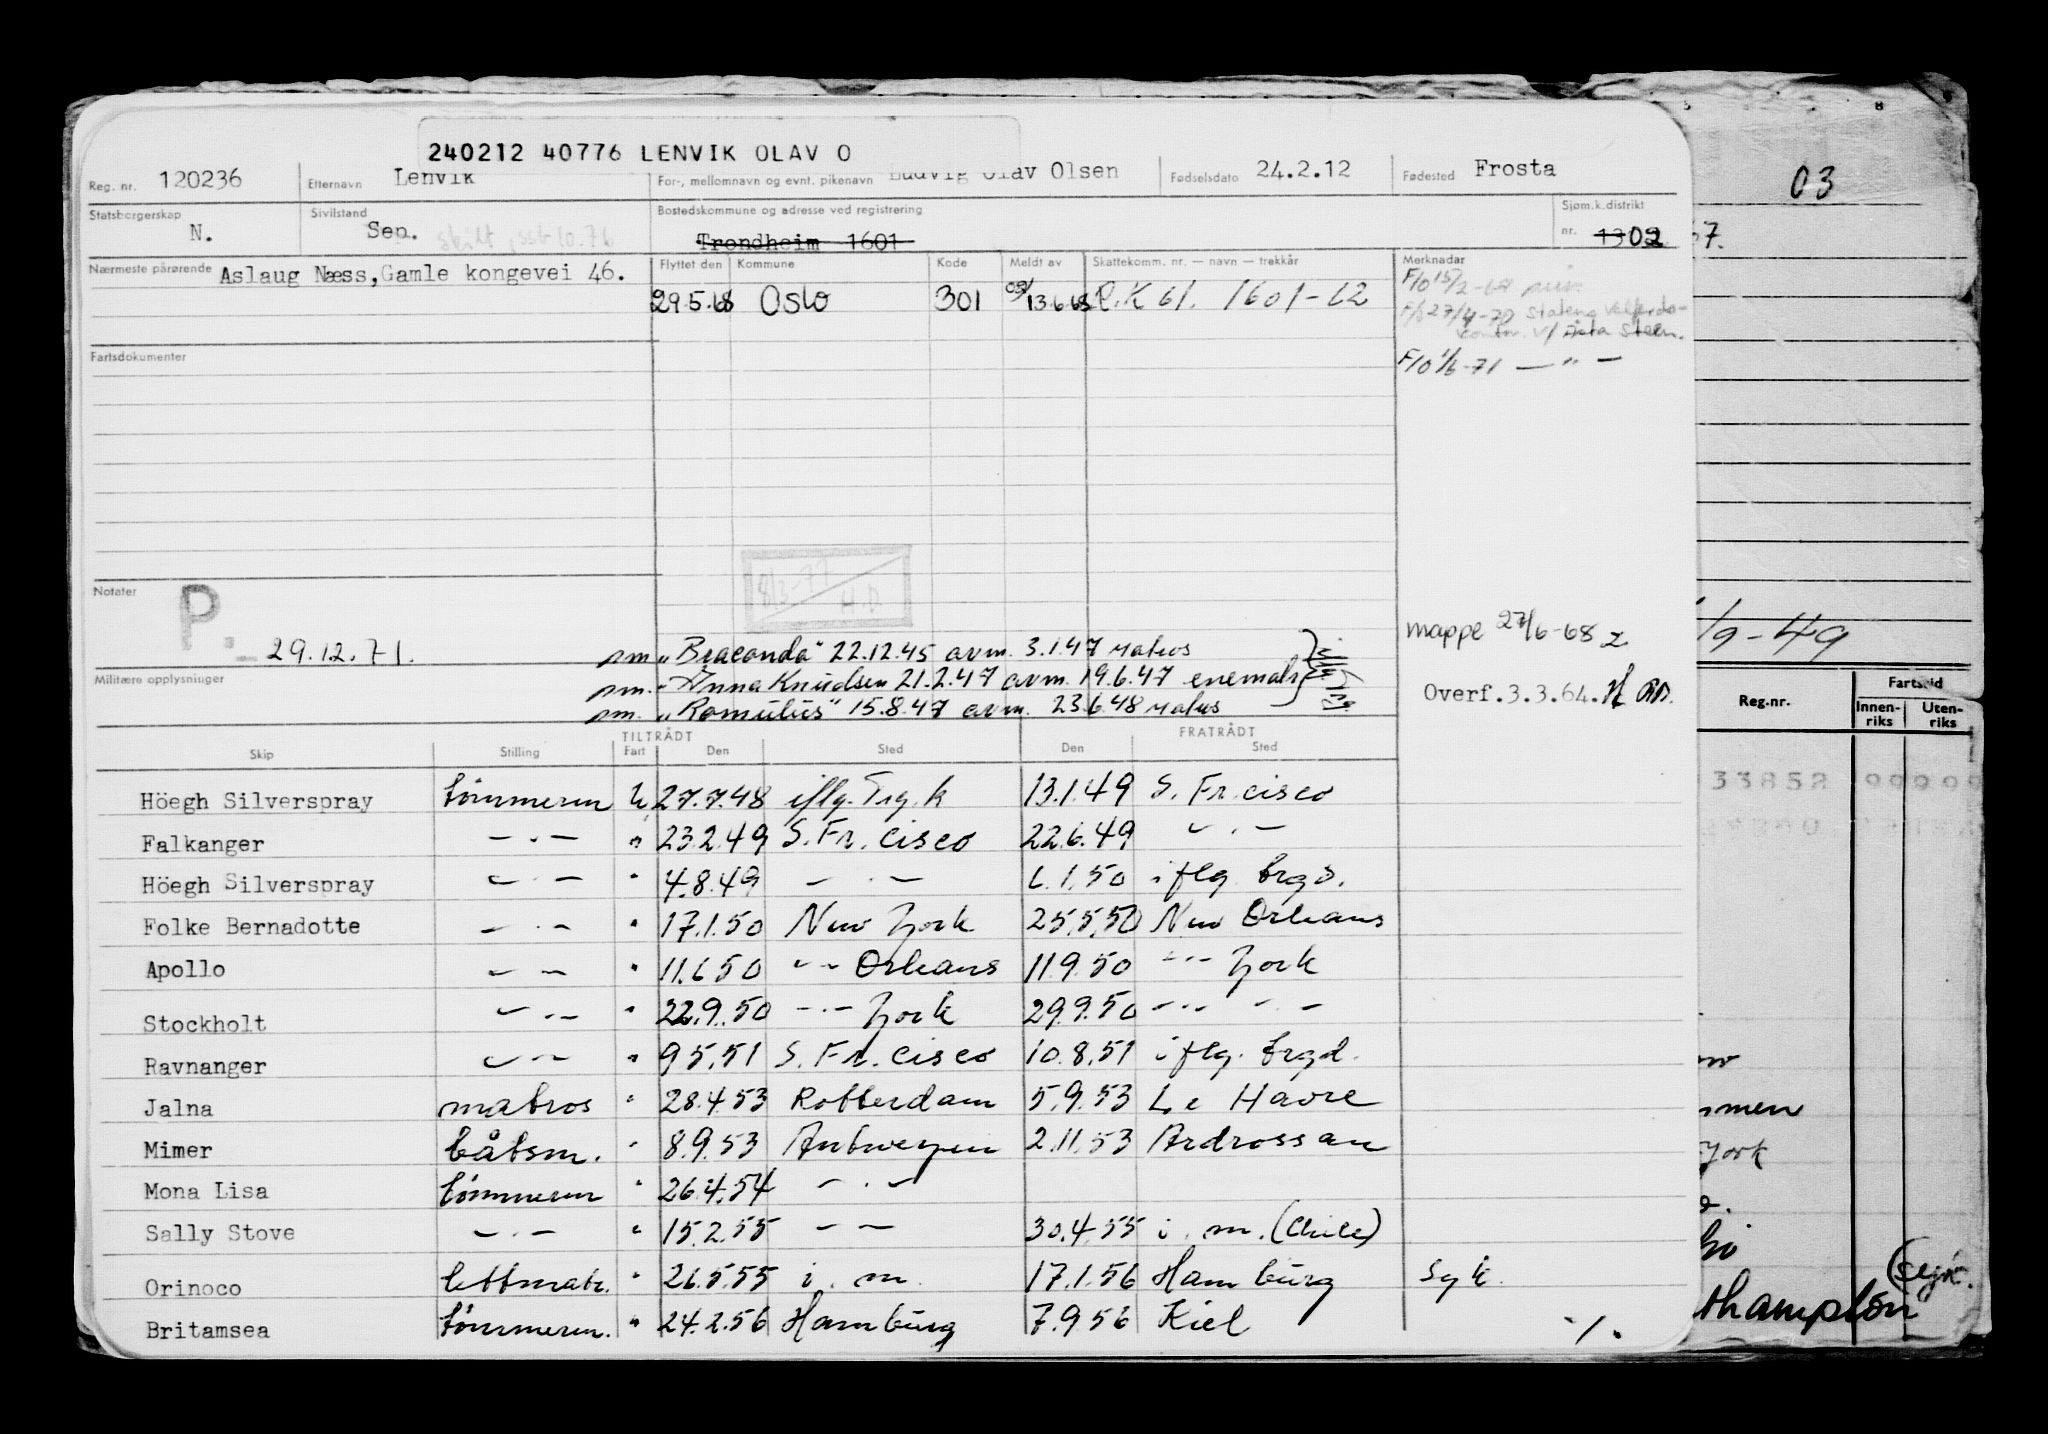 240212 40776 LENVIK OLAV O
Reg. nr. 120236 Etternavn Lenvik For-, mellomnavn og evnt. pikenavn Ludvig Olav Olsen Fødselsdato 24.2.12 Fødested Frosta
Statsborgerskap N. Sivilstand Sep. skilt Bostedskommune og adresse ved registrering Trondheim 1601 Sjøm.k.distrikt nr. 13 02
Nærmeste pårørende Aslaug Næss, Gamle kongevei 46. Flyttet den Kommune Kode Meldt av Skattekomm. nr. — navn — trekkår Merknadar
29.5.68 Oslo 301 13.6.68 R.K 61. 1601-62
F/O 15/2-68
27/4-70 Statens
v/ Steen.
F/O 1/6-71 — " —
Fartsdokumenter
8/3-77
H.D.
Notater P.
29.12.71.
mappe 27/6-68
sm. "Braconda" 22.12.45 avm. 3.1.47 matros
Militære opplysninger sm. "Anna Knudsen 21.2.47 avm. 19.6.47 enemals
sm. "Romulus" 15.8.47 avm. 23.6.48 matros
Overf.3.3.64.
TILTRÅDT FRATRÅDT
Skip Stilling Fart Den Sted Den Sted
Höegh Silverspray tömmerm U 27.7.48 iflg. Trg.k 13.1.49 S. Fr.cisco
Falkanger — . — " 23.2.49 S. Fr. cisco 22.6.49 — . —
Höegh Silverspray — . — " 4.8.49 — . — 6.1.50 iflg. brgd.
Folke Bernadotte — . — " 17.1.50 New York 25.5.50 New Orleans
Apollo — — " 11.6.50 — — Orleans 11.9.50 — . — York
Stockholt — . — " 22.9.50 — . — York 29.9.50 — . — — . —
Ravnanger — . — " 9.5.51 S. Fr. cisco 10.8.51 iflg. brgd.
Jalna matros " 28.4.53 Rotterdam 5.9.53 Le Havre
Mimer båtsm. " 8.9.53 Antwerpen 2.11.53 Ardrossan
Mona Lisa tömmerm " 26.4.54 — . —
Sally Stove — . — " 15.2.55 — — 30.4.55 i. m. (Chile)
Orinoco lettmatr. " 26.5.55 i. m. 17.1.56 Hamburg syk.
Britamsea tömmerm. " 24.2.56 Hamburg 7.9.56 Kiel ./.
8
03
57.
/9-49
Reg.nr. Fartstid
Innen-riks Uten-riks
33852 0000
mmen
York
(syk.
thampton